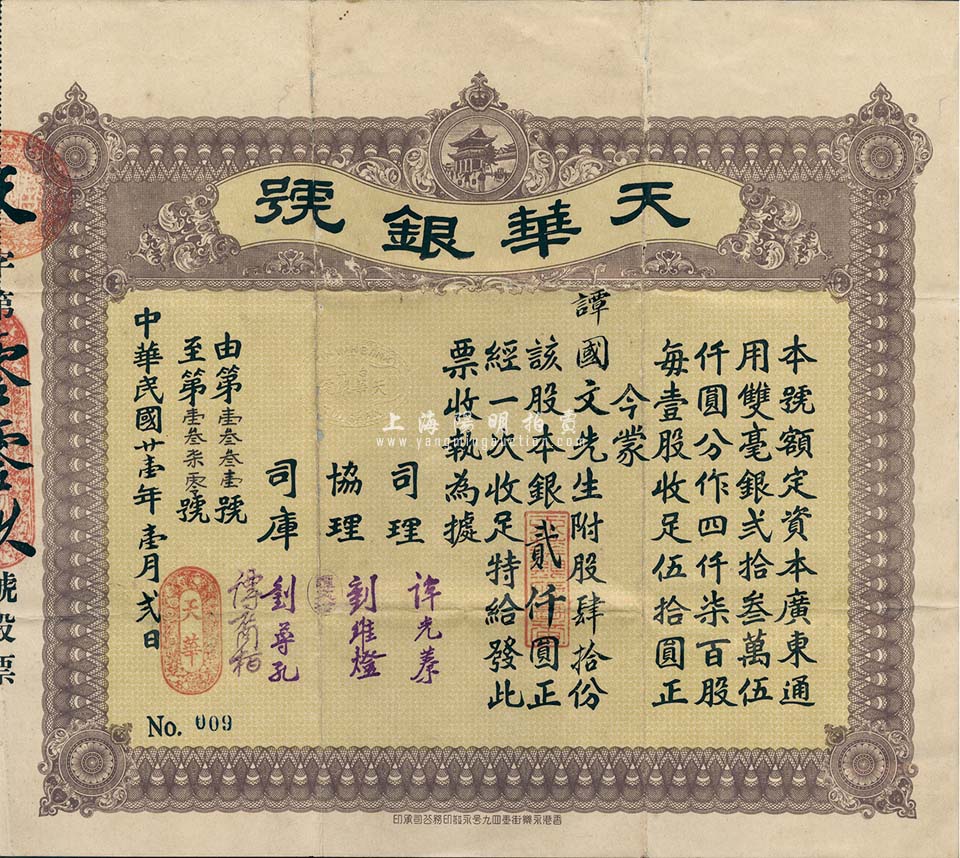 天華銀號
本號額定資本廣東通
用雙毫銀弍拾叁萬伍
仟圓分作四仟柒百股
每壹股收足伍拾圓正
今蒙
譚國文先生附股肆拾份
該股本銀貳仟圓正
經一次收足特給發此
票收執為據
司理 許光蓁
協理 劉維燈
司庫 劉尊孔
傅南柏
由第壹叁叁壹號
至第壹叁柒零號
中華民國廿壹年壹月弍日
天華
No. 009
字第零零玖號股票
上海陽明拍賣
www.yangmingauction.com
香港永樂街壹四九号永發印務公司承印